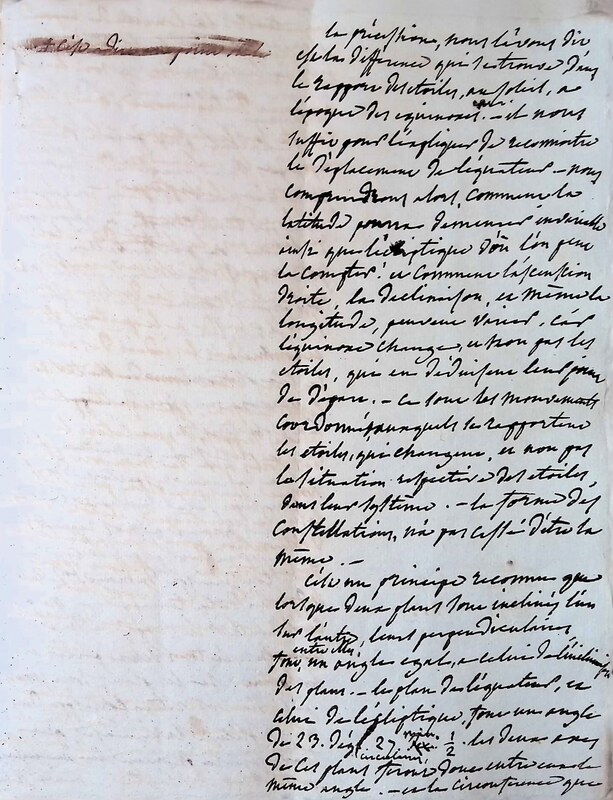 la précession, nous l'avons dit
est la différence qui se trouve dans
le rapport des étoiles, au soleil, a
l'époque des equinoxes. - il nous
suffit pour l'expliquer de reconnoitre
le déplacement de l'équateur - nous
comprendrons alors, comment la
latitude pourra demeurer invariable
ainsi que l'écliptique d'où l'on peut
la compter. et comment l'ascension
droite, la declinaison, et même la
longitude, peuvent varier. Car
l'équinoxe change, et non pas les
etoiles, qui en déduisent leur point
de départ. - ce sont les mouvements
coordonnés, auxquels se rapportent
les etoiles, qui changent, et non pas
la situation respective des etoiles,
dans leur systême. - la forme des
Constellations, n'a pas cessé d'être la
même. -
C'est un principe reconnu que
lorsque deux plans sont inclinés l'un
sur l'autre, leurs perpendiculaires
entr'elles
font, un angle egal, a celui de l'inclinaison
des plans. - le plan de l'équateur, et
celui de l'écliptique, font un angle
de 23. dég. 27. min. 1/2. les deux axes
de ces plans feront donc entre eux le
même angle. - et la circonference que